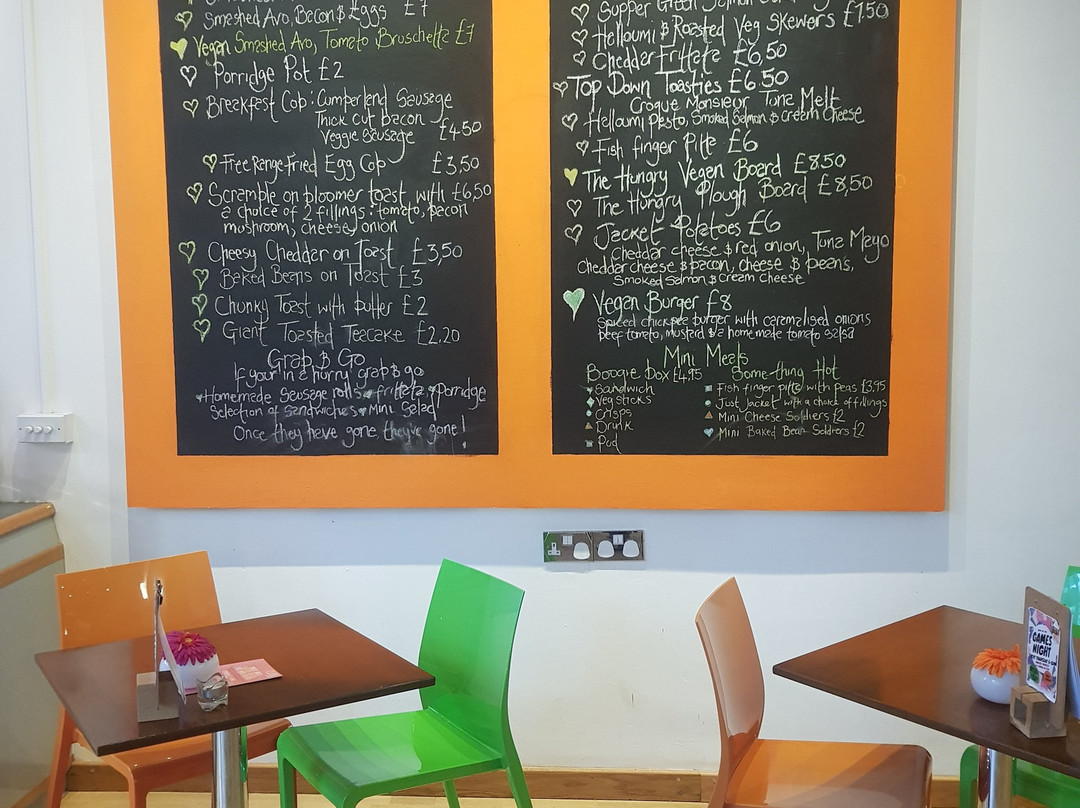 Smashed Avo, Bacon & Eggs £7
Vegan Smashed Avo, Tomato Bruschetta £7
Porridge Pot £2
Breakfast Cob: Cumberland Sausage
Thick cut bacon
Veggie Sausage £4.50
Free Range Fried Egg Cob £3,50
Scramble on bloomer toast with £6,50
a choice of 2 fillings: tomato, bacon
mushroom, cheese, onion
Cheesy Cheddar on Toast £3,50
Baked Beans on Toast £3
Chunky Toast with butter £2
Giant Toasted Teacake £2.20
Grab & Go
If your in a hurry grab & go
Homemade Sausage rolls frittata Porridge
Selection of sandwiches Mini Salad
Once they have gone, they've gone!
Super Green Salmon
Helloumi & Roasted Veg Skewers £7.50
Cheddar Frittata £6,50
Top Down Toasties £6.50
Croque Monsieur Tuna Melt
Helloumi Pesto, Smoked Salmon & cream cheese
Fish finger Pitta £6
The Hungry Vegan Board £8.50
The Hungry Plough Board £8,50
Jacket Potatoes £6
Cheddar cheese & red onion, Tuna Mayo
Cheddar cheese & bacon, cheese & beans,
Smoked salmon & cream cheese
Vegan Burger £8
Spiced chickpea burger with caramalised onions
beef tomato, mustard & a homemade tomato salsa
Mini Meals
Boogie Box £4,95
Sandwich
Veg sticks
Crisps
Drink
Pud
Something Hot
Fish finger pitta with peas £3.95
Just Jacket with a choice of fillings
Mini Cheese Soldiers £2
Mini Baked Bean Soldiers £2
GAMES
NIGHT